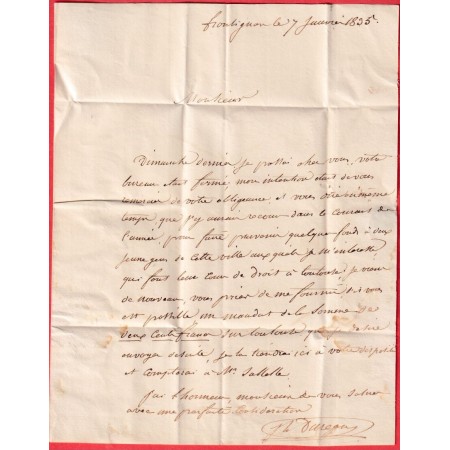 frontignan le 7 Janvier 1835.
Monsieur
Dimanche dernier je passai chez vous, votre
bureau étant fermé, mon intention était de vous
remercier de votre obligeance, et vous dire en même
temps que j'y aurais recours dans le courant de
l'année, pour faire parvenir quelque fonds à deux
jeunes gens de cette ville auxquels je m'intéresse
qui font leur cour de droit à toulouse; je viens
de nouveau, vous prier de me fournir si vous
est possible un mandat de la somme de
deux cents francs sur toulouse
envoyer de suite, je les tiendrai ici à votre disposition
et compterai à Mr. Sallelle
j'ai l'honneur, monsieur de vous saluer
avec une parfaite Considération